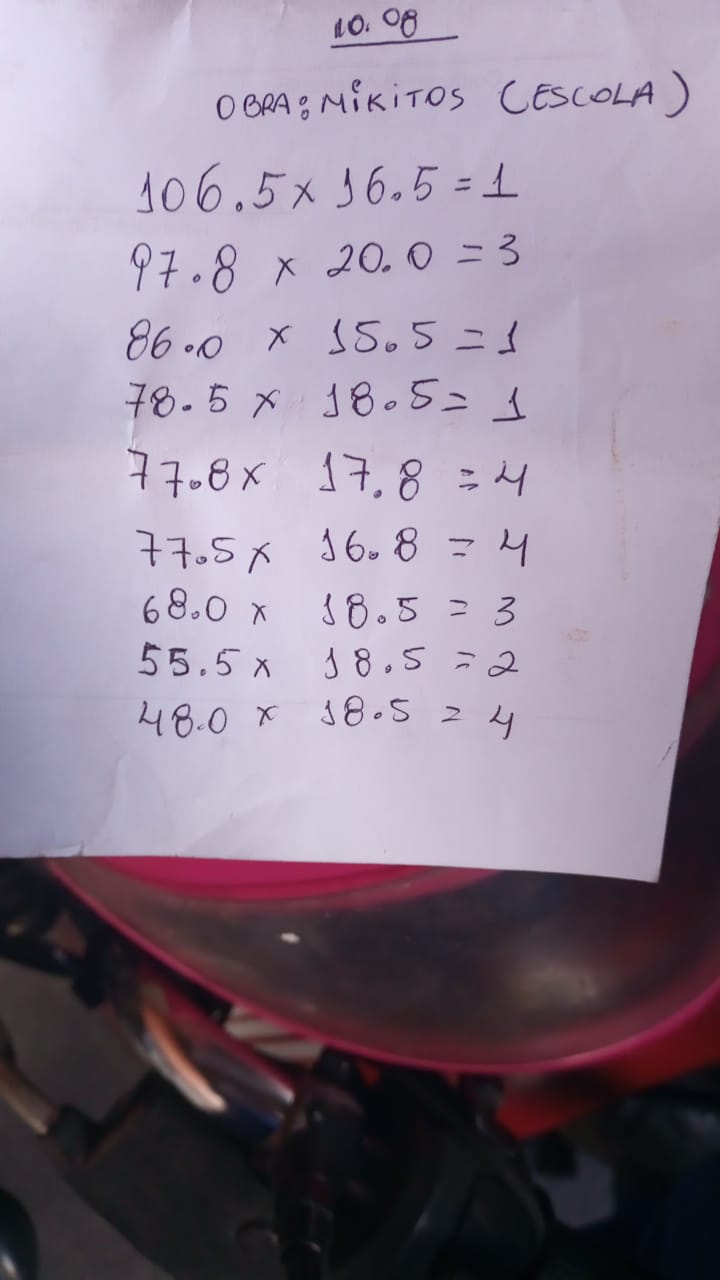 10.08
OBRA: MIKITOS (ESCOLA)
106.5 x 16.5 = 1
97.8 x 20.0 = 3
86.0 x 15.5 = 1
78.5 x 18.5 = 1
77.8 x 17.8 = 4
77.5 x 16.8 = 4
68.0 x 18.5 = 3
55.5 x 18.5 = 2
48.0 x 18.5 = 4